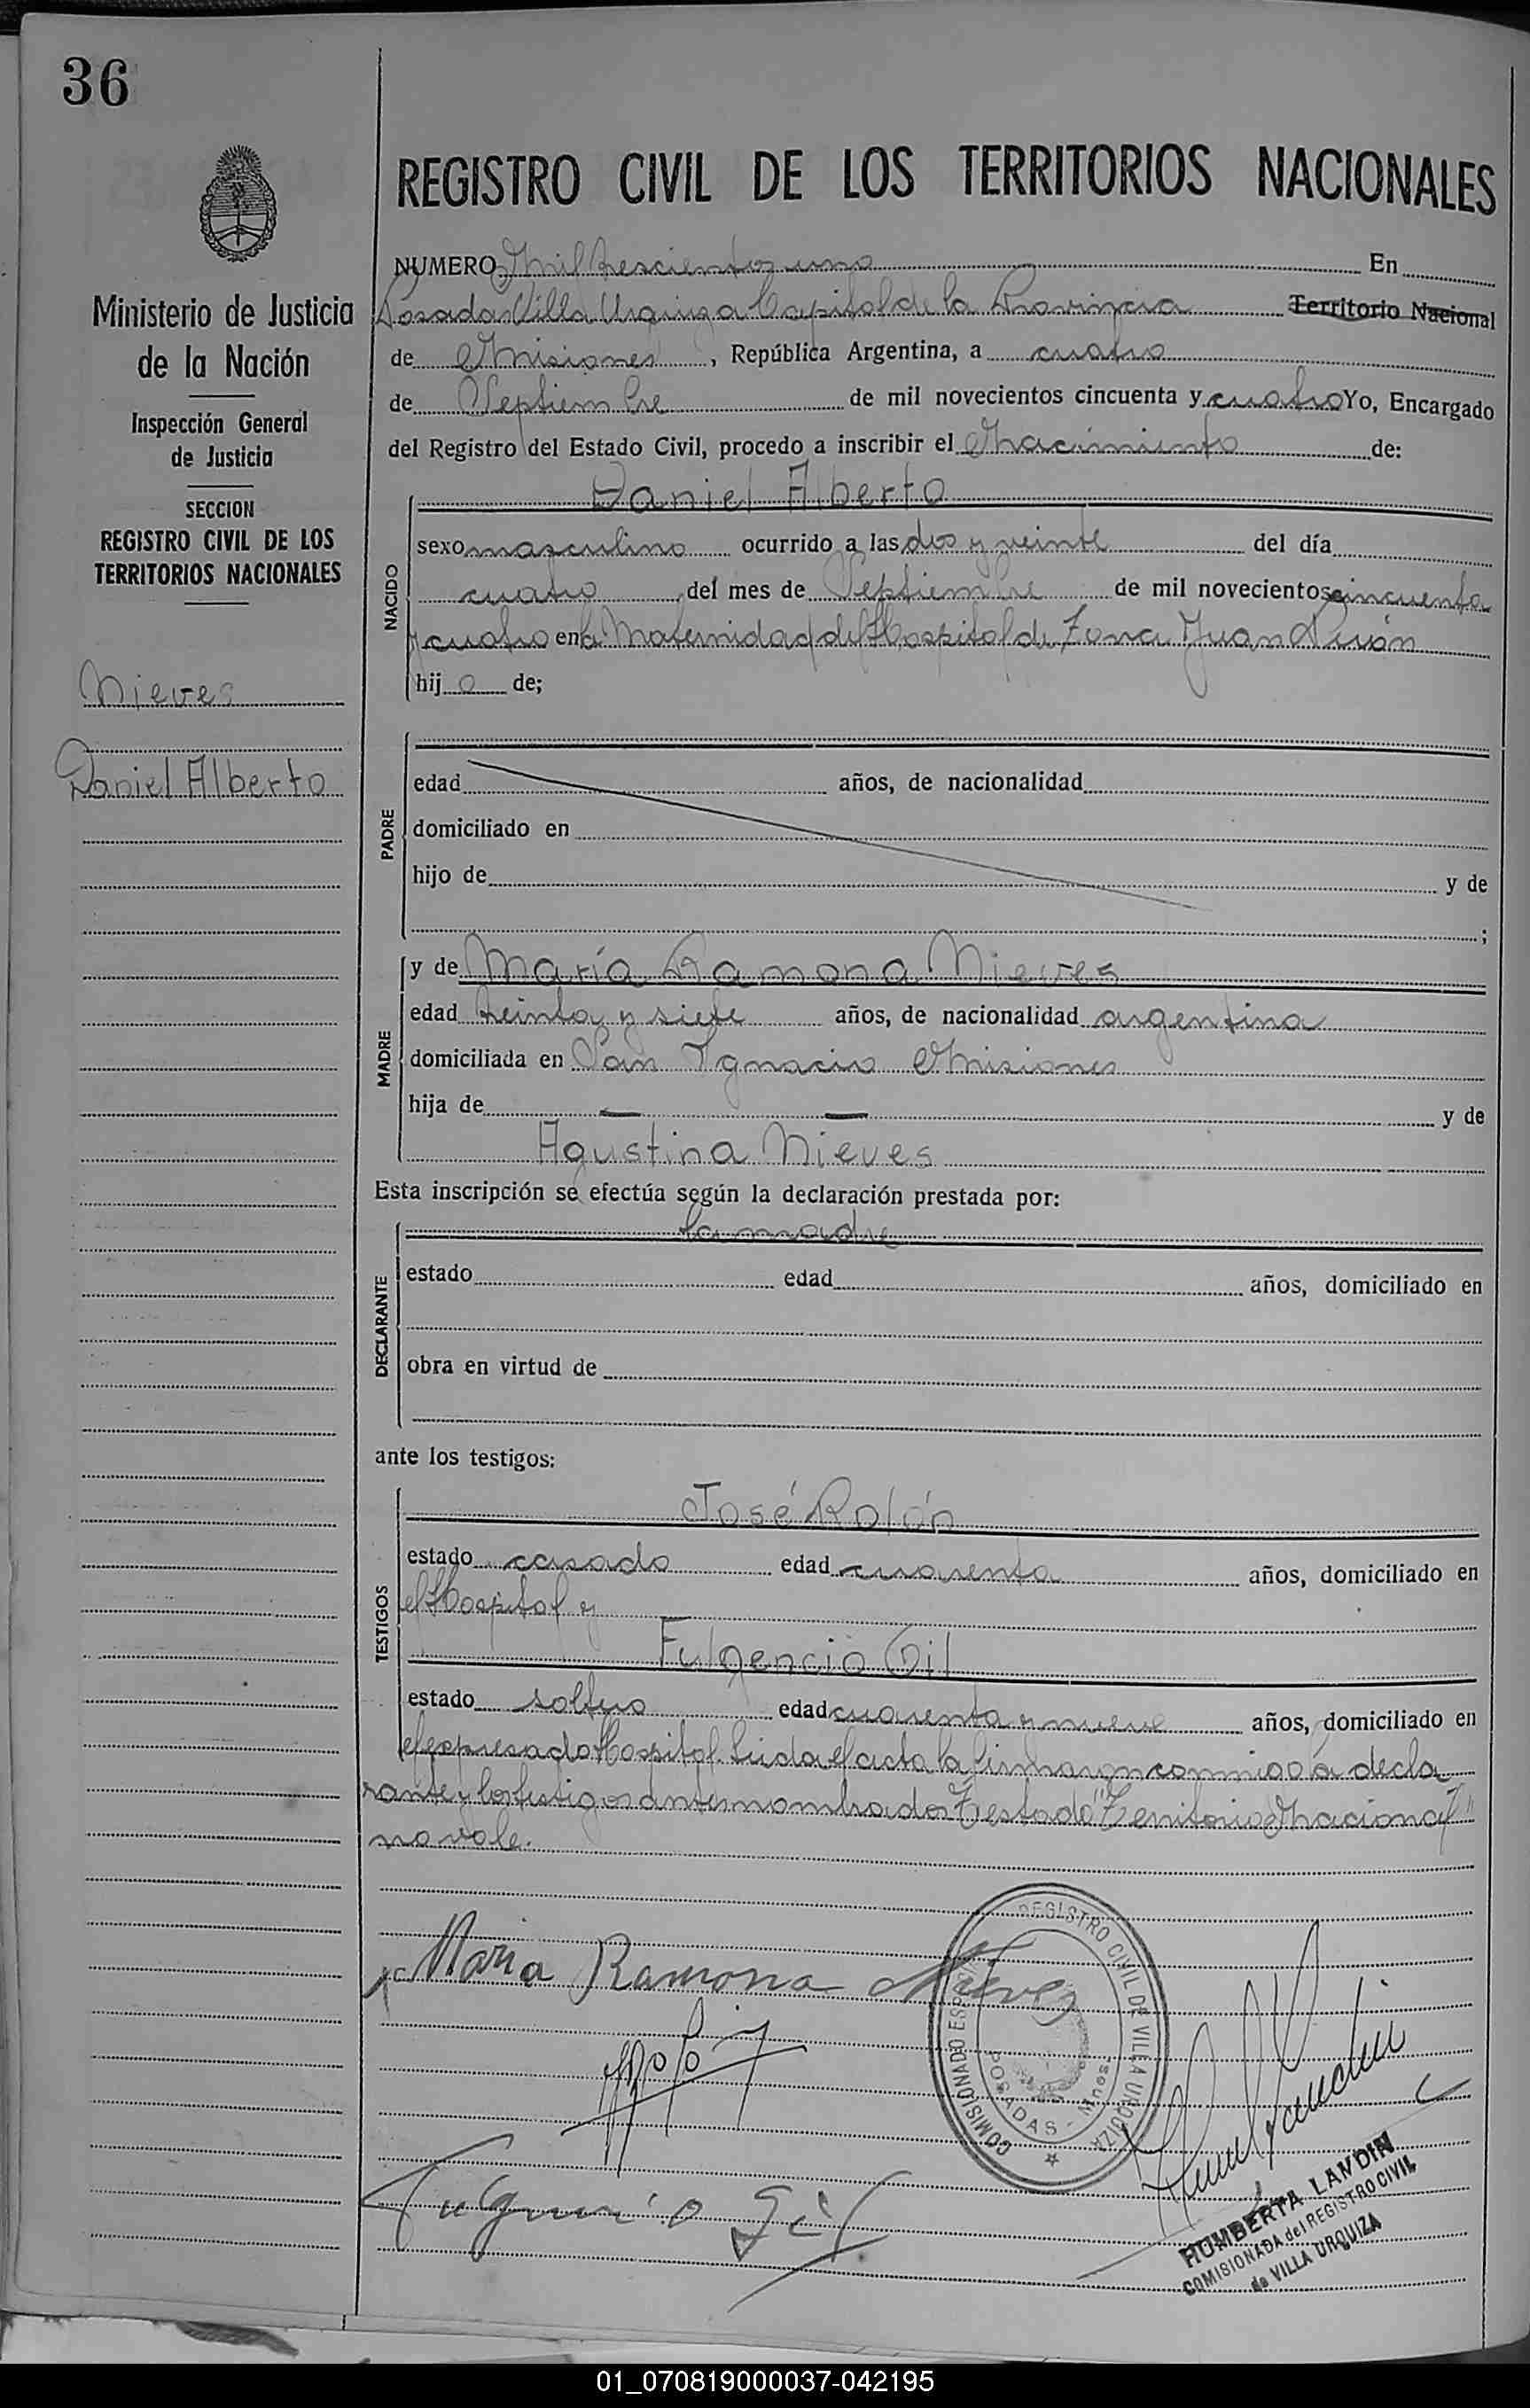 36
REGISTRO CIVIL DE LOS TERRITORIOS NACIONALES
Ministerio de Justicia
de la Nación
Inspección General
de Justicia
SECCION
REGISTRO CIVIL DE LOS
TERRITORIOS NACIONALES
Nieves
Daniel Alberto
NUMERO mil trescientos uno En
Posadas Villa Urquiza Capital de la Provincia Territorio Nacional
de Misiones, República Argentina, a cuatro
de Septiembre de mil novecientos cincuenta y cuatro Yo, Encargado
del Registro del Estado Civil, procedo a inscribir el nacimiento de:
NACIDO
Daniel Alberto
sexo masculino ocurrido a las dos y veinte del día
cuatro del mes de Septiembre de mil novecientos cincuenta
y cuatro en la Maternidad del Hospital de Zona Juan Perón
hij o de;
PADRE
edad años, de nacionalidad
domiciliado en
hijo de y de
;
MADRE
y de María Ramona Nieves
edad treinta y siete años, de nacionalidad argentina
domiciliada en San Ignacio Misiones
hija de — — y de
Agustina Nieves
Esta inscripción se efectúa según la declaración prestada por:
DECLARANTE
la madre
estado edad años, domiciliado en
obra en virtud de
ante los testigos:
TESTIGOS
José Rolón
estado casado edad cuarenta años, domiciliado en
el Hospital y
Fulgencio Gil
estado soltero edad cuarenta y nueve años, domiciliado en
el expresado Hospital. Leida el acta la firmaron conmigo la decla
rante y los testigos antes nombrados Testado "Territorio Nacional"
no vale.
Maria Ramona Nieves
REGISTRO CIVIL DE VILLA URQUIZA
COMISIONADO
POSADAS - Mnes
Fulgencio Gil
HUMBERTA LANDIN
COMISIONADA del REGISTRO CIVIL
de VILLA URQUIZA
01_070819000037-042195